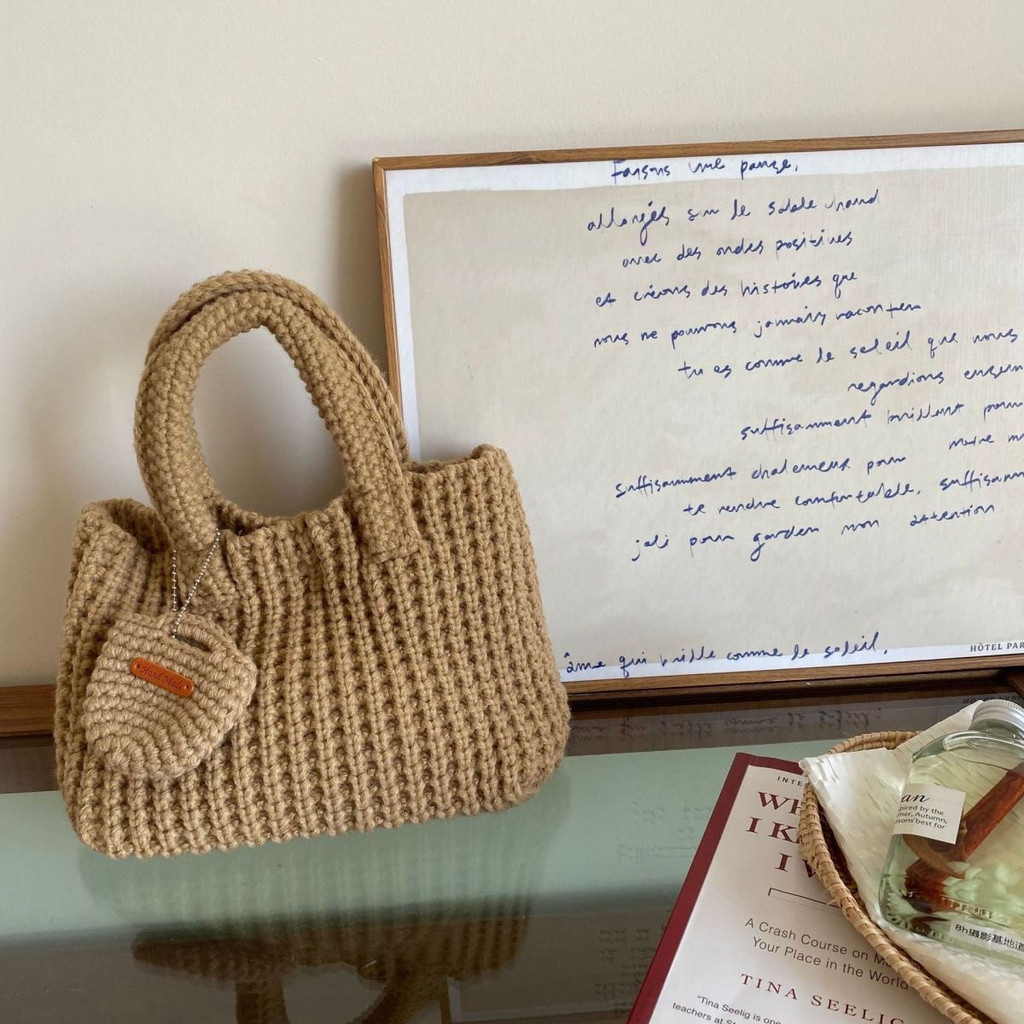 Faisons une pause,
allongés sur le sable chaud
avec des ondes positives
et créons des histoires que
nous ne pouvons jamais raconter
tu es comme le soleil que nous
regardions ensem
suffisamment brillant pour
suffisamment chaleureux pour
te rendre comfortable, suffisam
joli pour garder mon attention
âme qui brille comme le soleil.
HÔTEL PAR
Hand Made
INTE
WH
I K
I W
A Crash Course on M
Your Place in the World
TINA SEELIG
"Tina Seelig is one
teachers at St
an
pired by the
mer, Autumn,
sons' best for